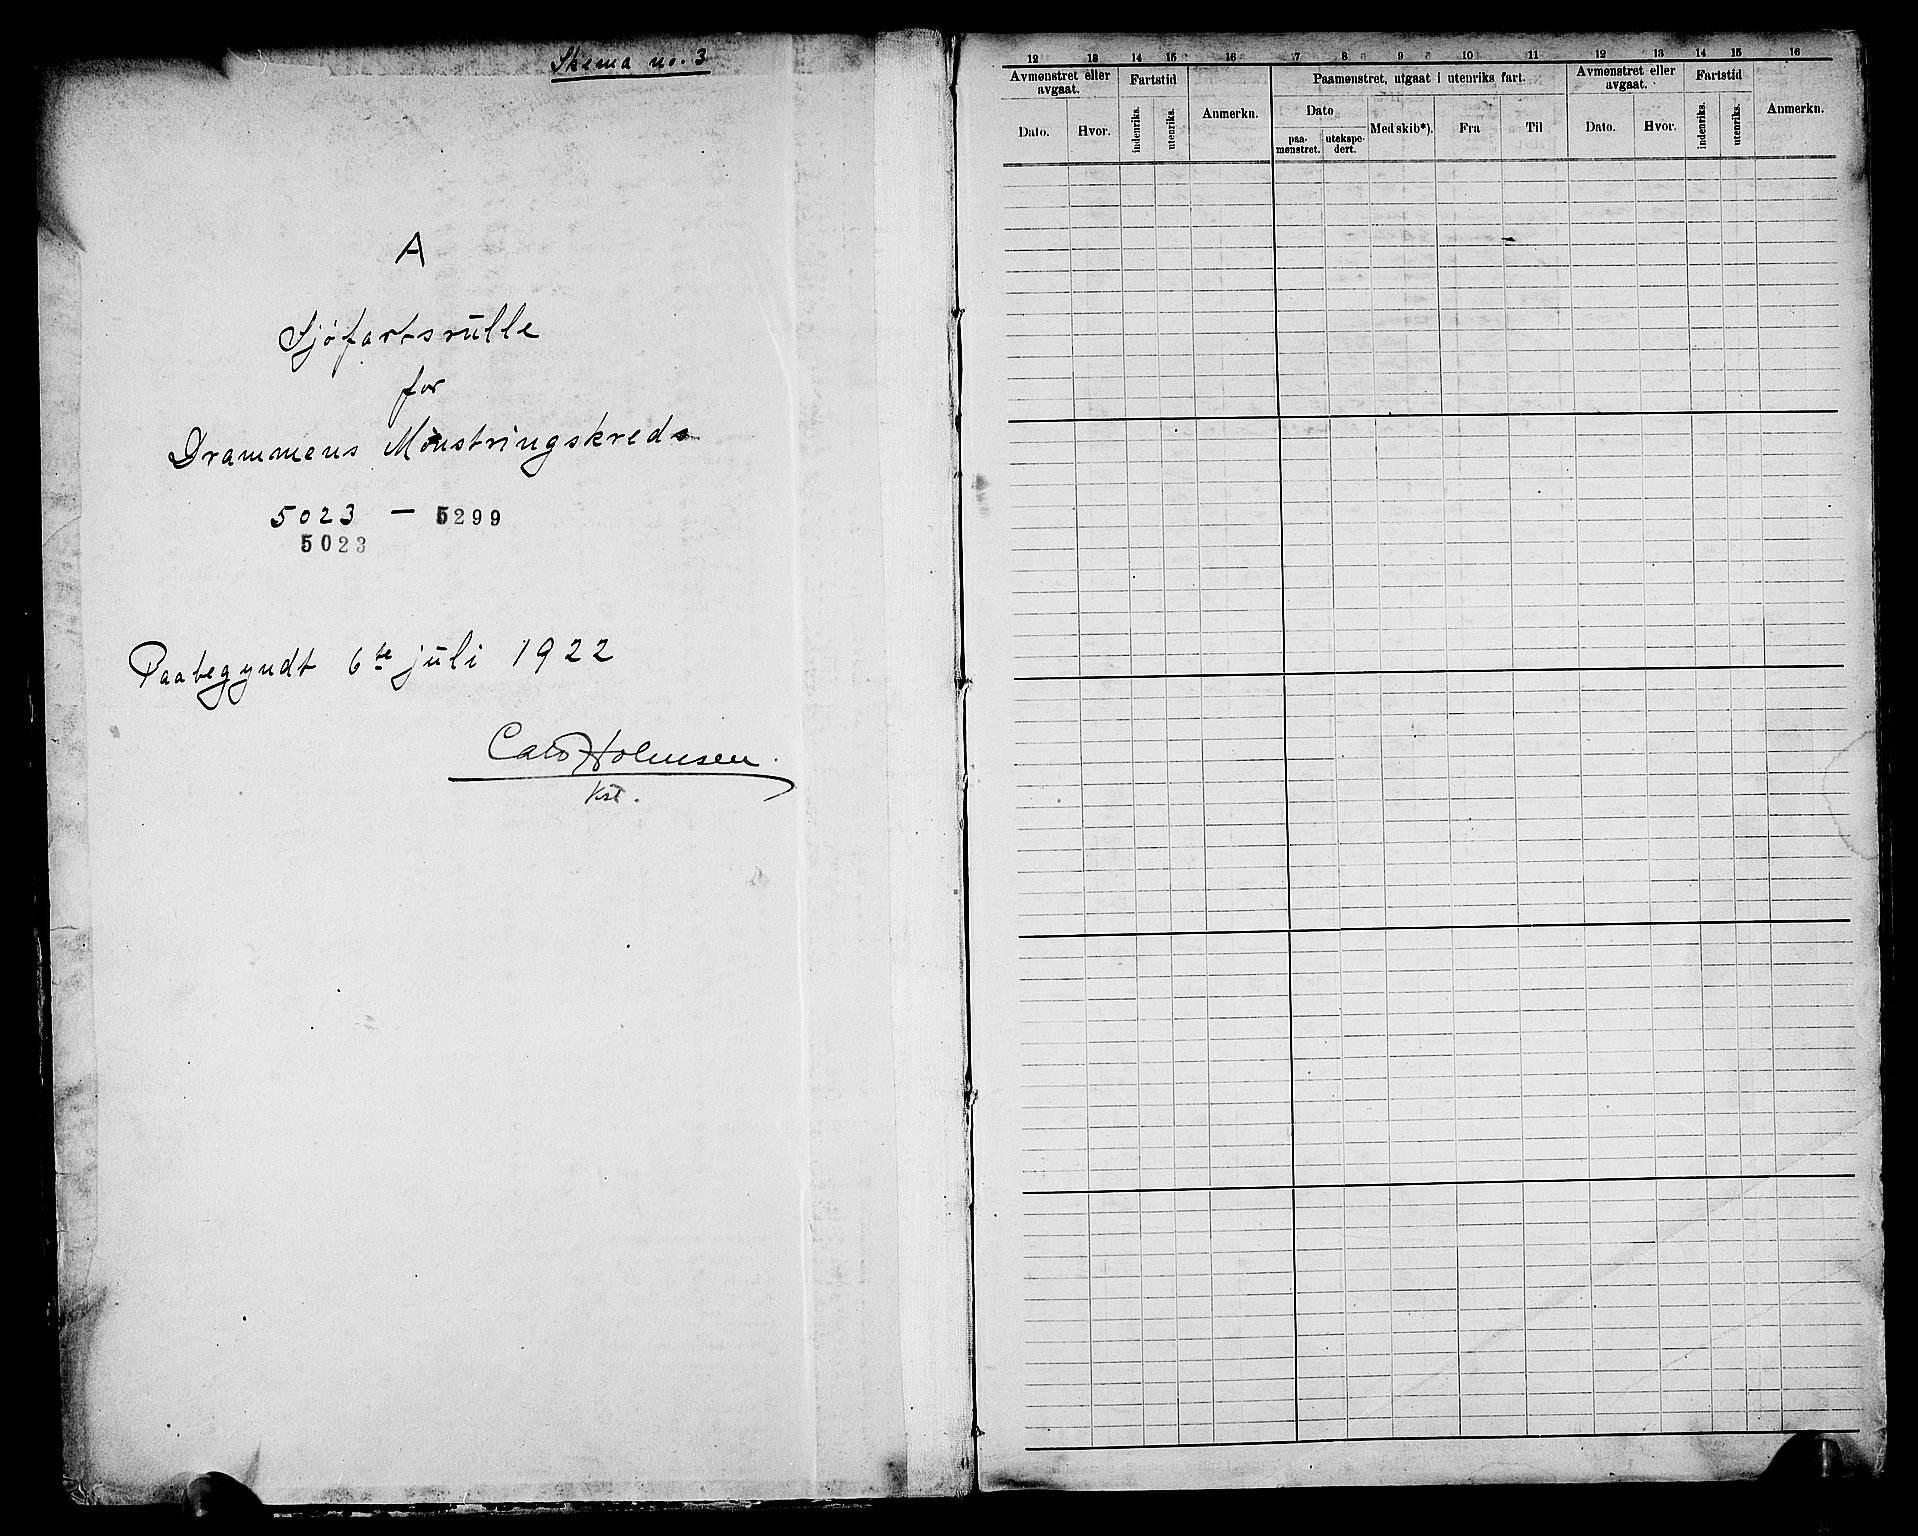 Skema no. 3
A
Sjøfartsrulle
for
Drammens Mønstringskreds
5023 — 5299
5023
Paabegyndt 6te juli 1922
Carl Holmsen.
Kst.
12 13 14 15 16 7 8 9 10 11 12 13 14 15 16
Avmønstret eller avgaat. Fartstid Anmerkn. Paamønstret, utgaat i utenriks fart. Avmønstret eller avgaat. Fartstid Anmerkn.
Dato. Hvor. indenriks. utenriks. Dato Med skib*). Fra Til Dato. Hvor. indenriks. utenriks.
paa-mønstret. utekspe-dert.